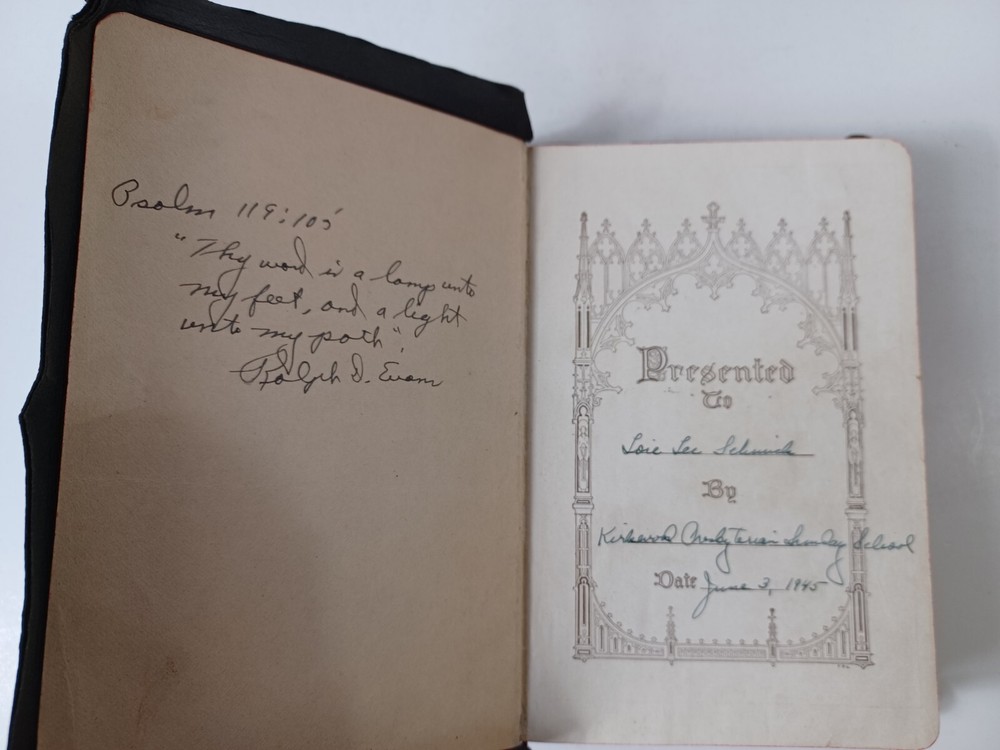 Psalm 119:105
"Thy word is a lamp unto
my feet, and a light
unto my path".
Ralph D. Evans
Presented
To
Lee
By
Kirkwood Presbyterian Sunday School
Date June 3, 1945